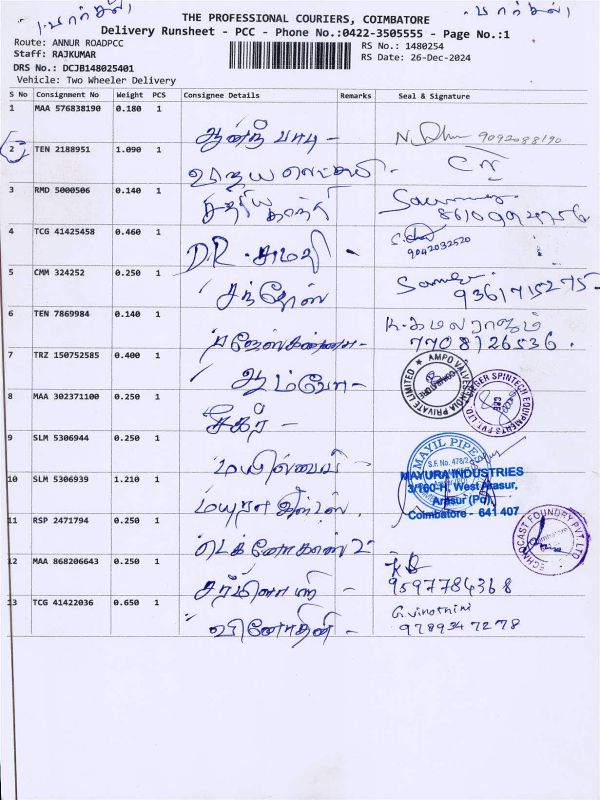 (பார்சல்) (பார்சல்)
THE PROFESSIONAL COURIERS, COIMBATORE
Delivery Runsheet - PCC - Phone No.:0422-3505555 - Page No.:1
Route: ANNUR ROADPCC RS No.: 1480254
Staff: RAJKUMAR RS Date: 26-Dec-2024
DRS No.: DCJB148025401
Vehicle: Two Wheeler Delivery
S No Consignment No Weight PCS Consignee Details Remarks Seal & Signature
1 MAA 576838190 0.180 1 9092088190
2 TEN 2188951 1.090 1
3 RMD 5000506 0.140 1
4 TCG 41425458 0.460 1 DR. - 9042032520
5 CMM 324252 0.250 1 சந்தோஸ் 9361715275-
6 TEN 7869984 0.140 1 K. கமலராஜம் 7708126536.
7 TRZ 150752585 0.400 1 AMPO VALVES INDIA PRIVATE LIMITED COIMBATORE
8 MAA 302371100 0.250 1 சேகர் - SPINTECH EQUIPMENTS PVT LTD CBE
9 SLM 5306944 0.250 1 MAYIL PIPE S.F. No. 478/2
10 SLM 5306939 1.210 1 MAYURA INDUSTRIES
3/160-H, West Arasur,
Arasur (Po),
Coimbatore - 641 407
11 RSP 2471794 0.250 1 டெக்னோகாஸ்ட் TECHNOCAST FOUNDRY PVT. LTD
12 MAA 868206643 0.250 1 9597784368
13 TCG 41422036 0.650 1 வினோதினி - G.vinothini
9789347278